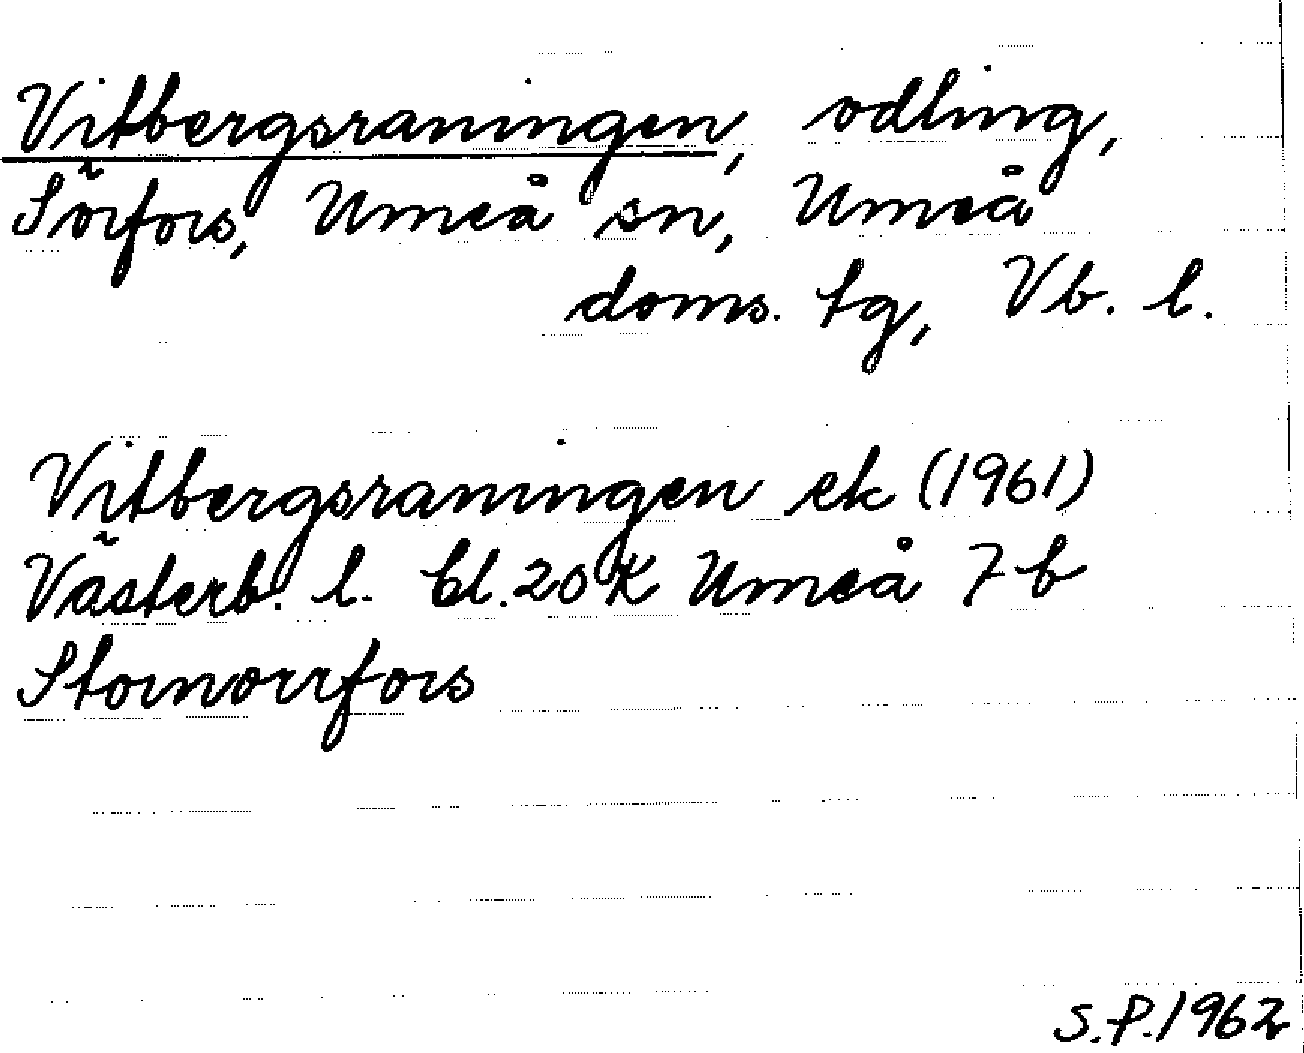 Vitbergsraningen, odling,
Sörfors, Umeå sn, Umeå
doms. tg, Vb. l.
Vitbergsraningen ek (1961)
Västerb. l. bl. 20 K Umeå 7 b
Stornorrfors
S.P. 1962